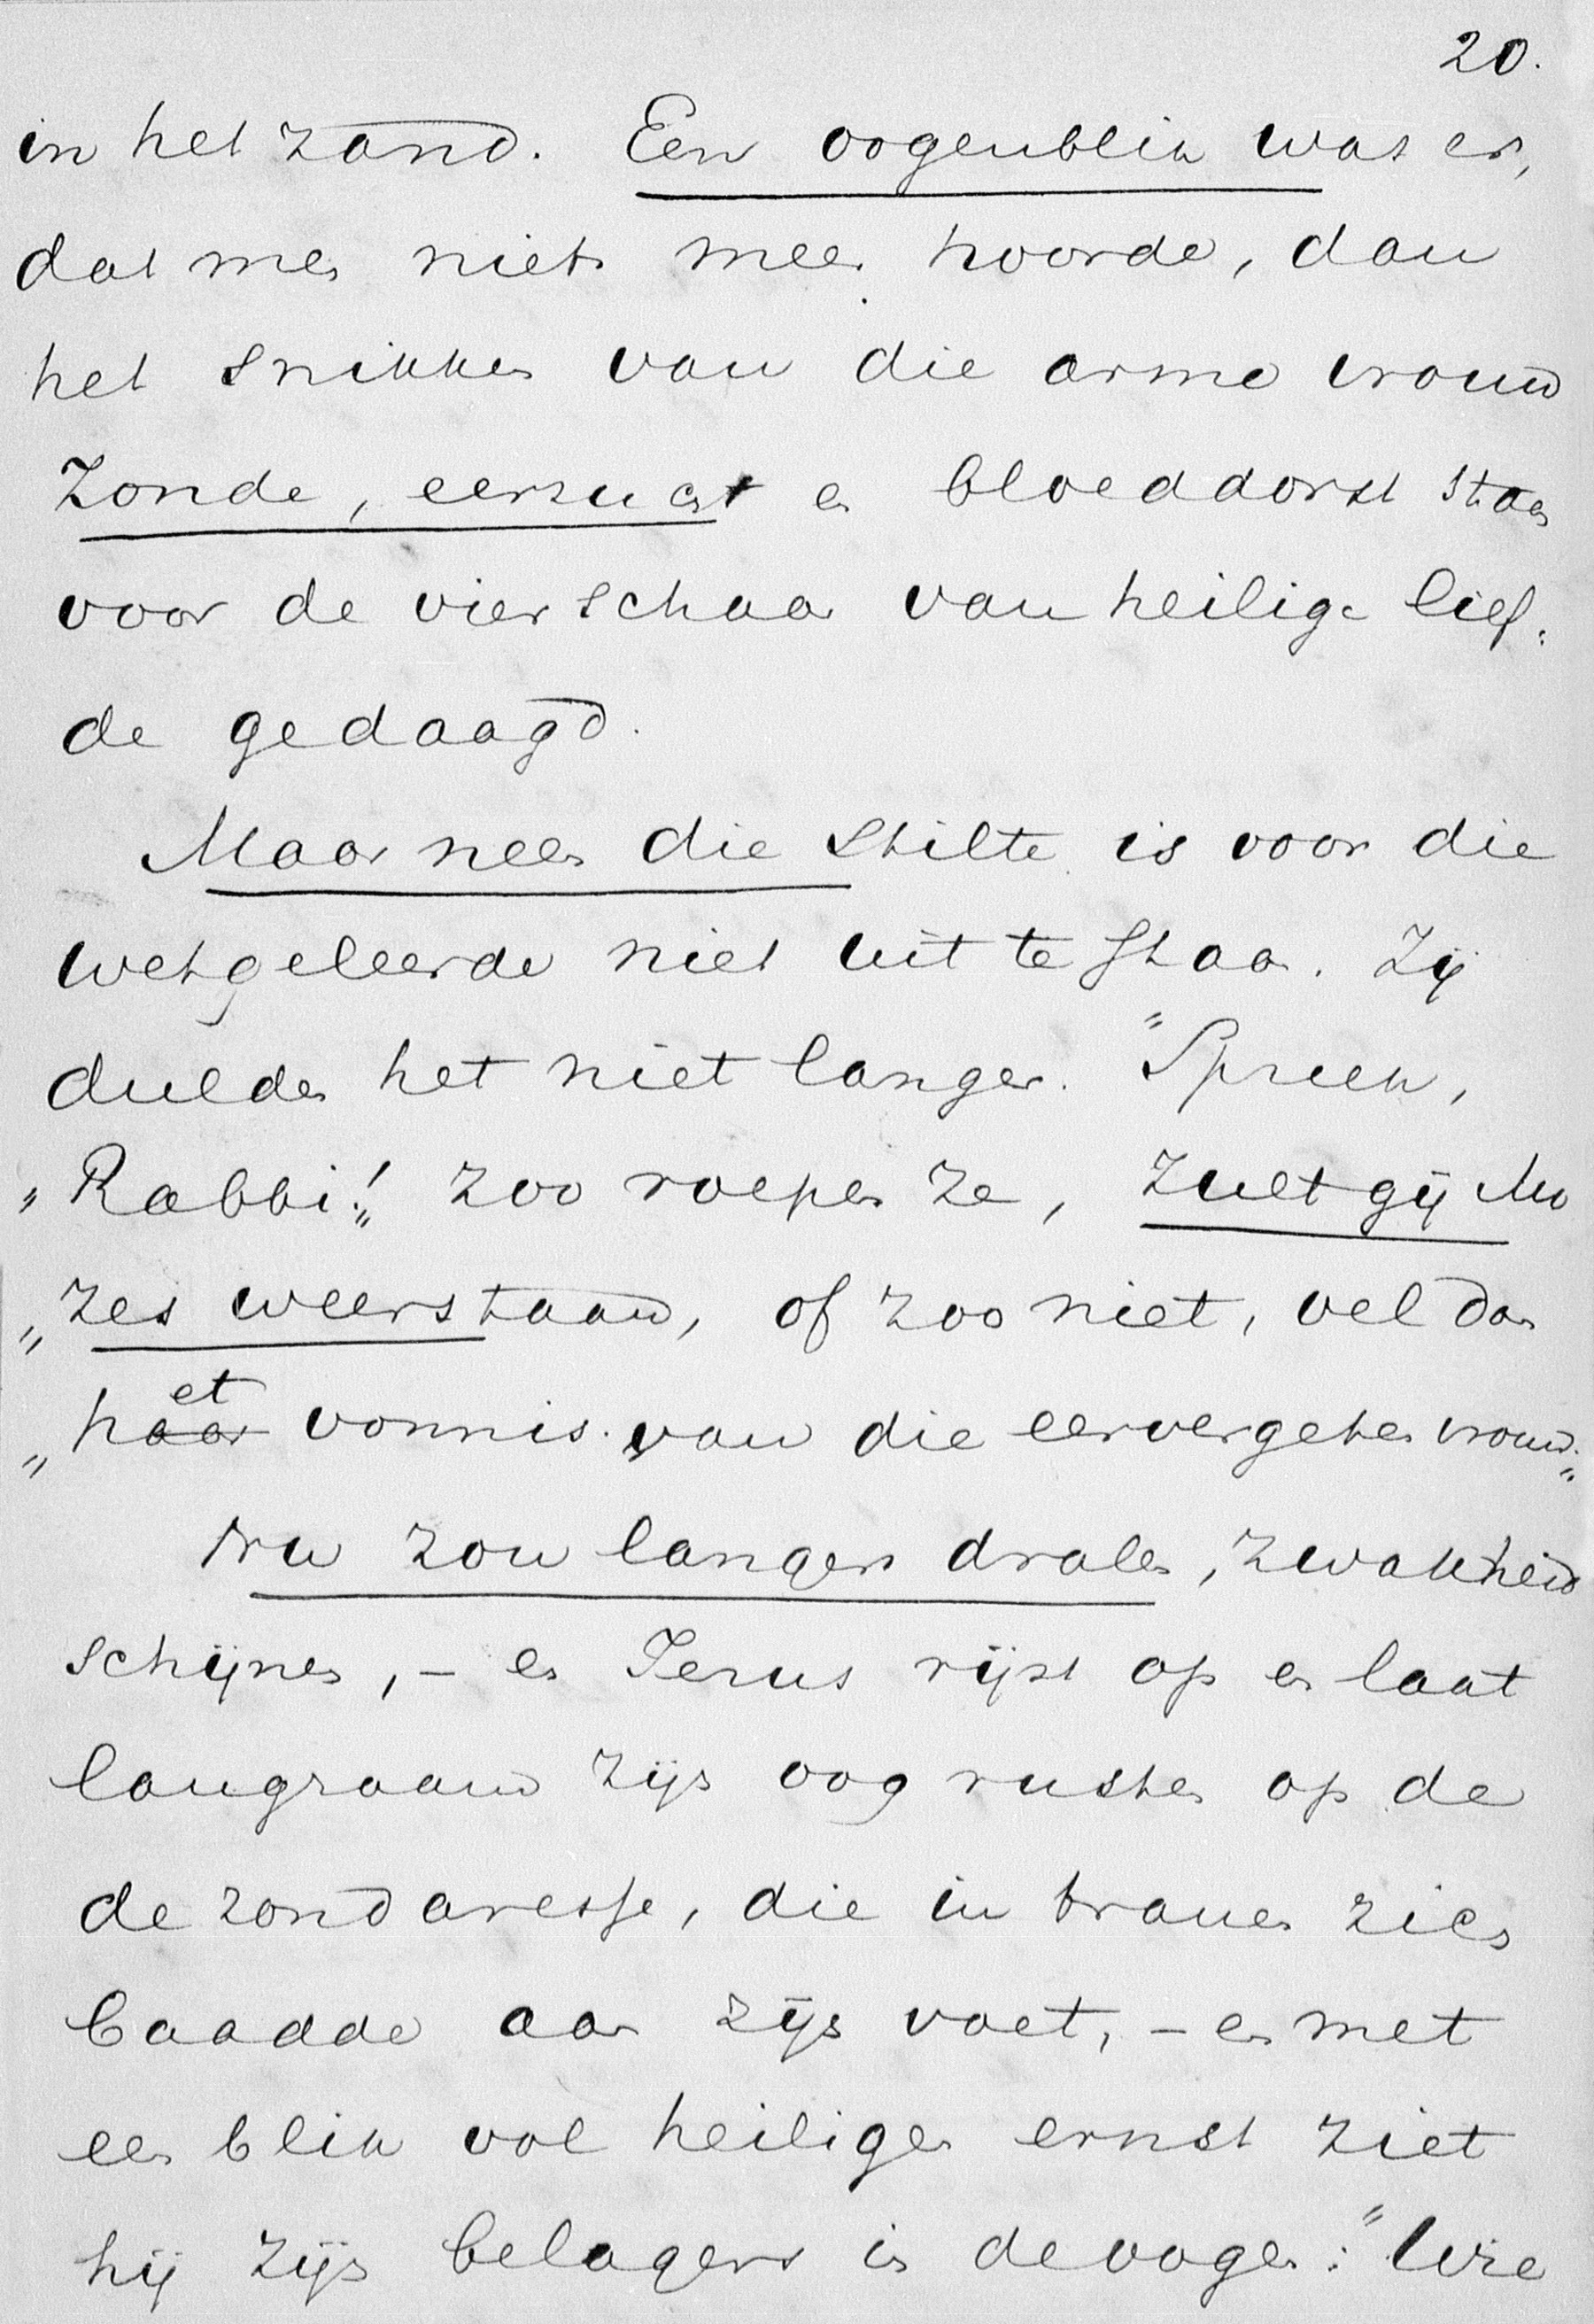 20.
in het zand. Een oogenblik was er,
dat men niets meer hoorde, dan
het snikken van die arme vrouw
Zonde, eerzucht en bloeddorst staan
voor de vierschaar van heilige lief-
de gedaagd.
Maar neen die stilte is voor die
wetgeleerde niet uit te staan. Zij
dulden het niet langer. "Spreek,
"Rabbi!" zoo roepen ze, zult gij Mo
"zes weerstaan, of zoo niet, vel dan
"haar et vonnis van die eervergeten vrouw."
Nu zou langer dralen, zwakheid
schijnen, – en Jezus rijst op en laat
langzaam zijn oog rusten op de
de zondaresse, die in tranen zich
baadde aan zijn voet, – en met
een blik vol heiligen ernst ziet
hij zijn belagers in de oogen: "Wie